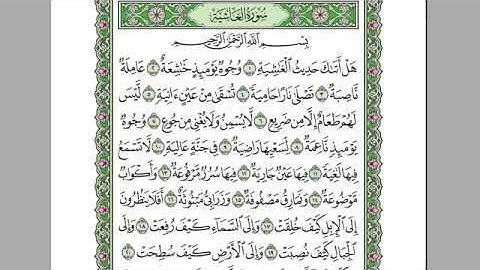 سُورَةُ الْغَاشِيَةِ
بِسْمِ اللَّهِ الرَّحْمَٰنِ الرَّحِيمِ
هَلْ أَتَىٰكَ حَدِيثُ الْغَٰشِيَةِ ١ وُجُوهٌ يَوْمَئِذٍ خَٰشِعَةٌ ٢ عَامِلَةٌ
نَّاصِبَةٌ ٣ تَصْلَىٰ نَارًا حَامِيَةً ٤ تُسْقَىٰ مِنْ عَيْنٍ ءَانِيَةٍ ٥ لَّيْسَ
لَهُمْ طَعَامٌ إِلَّا مِن ضَرِيعٍ ٦ لَّا يُسْمِنُ وَلَا يُغْنِي مِن جُوعٍ ٧ وُجُوهٌ
يَوْمَئِذٍ نَّاعِمَةٌ ٨ لِّسَعْيِهَا رَاضِيَةٌ ٩ فِي جَنَّةٍ عَالِيَةٍ ١٠ لَّا تَسْمَعُ
فِيهَا لَٰغِيَةً ١١ فِيهَا عَيْنٌ جَارِيَةٌ ١٢ فِيهَا سُرُرٌ مَّرْفُوعَةٌ ١٣ وَأَكْوَابٌ
مَّوْضُوعَةٌ ١٤ وَنَمَارِقُ مَصْفُوفَةٌ ١٥ وَزَرَابِيُّ مَبْثُوثَةٌ ١٦ أَفَلَا يَنظُرُونَ
إِلَى الْإِبِلِ كَيْفَ خُلِقَتْ ١٧ وَإِلَى السَّمَاءِ كَيْفَ رُفِعَتْ ١٨ وَإِلَى
الْجِبَالِ كَيْفَ نُصِبَتْ ١٩ وَإِلَى الْأَرْضِ كَيْفَ سُطِحَتْ ٢٠